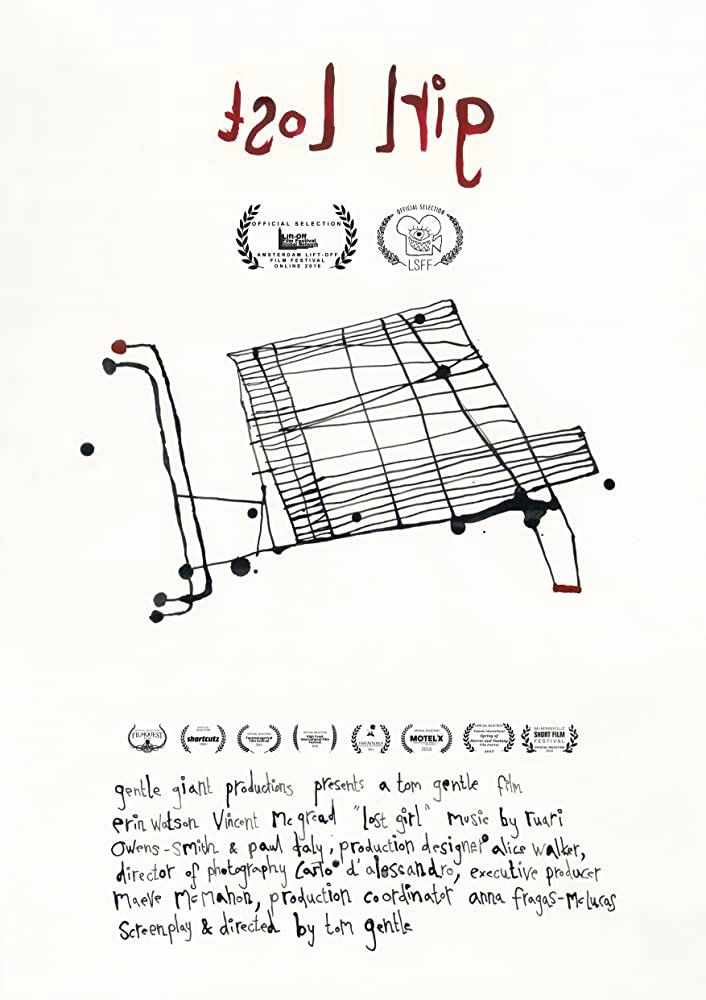 girl Lost
OFFICIAL SELECTION
Lift-Off
AMSTERDAM LIFT-OFF
FILM FESTIVAL
ONLINE 2016
OFFICIAL SELECTION
LSFF
FILMQUEST
shortcutz
MOTELX
2016
2017
SHORT FILM
FESTIVAL
OFFICIAL SELECTION
gentle giant productions presents a tom gentle film
erin watson Vincent Mc gread "lost girl" Music by ruari
Owens-Smith & paul daly, production designer alice walker,
director of photography Carlo d'alessandro, executive producer
Maeve McMahon, production coordinator anna fragas-McLucas
Screenplay & directed by tom gentle